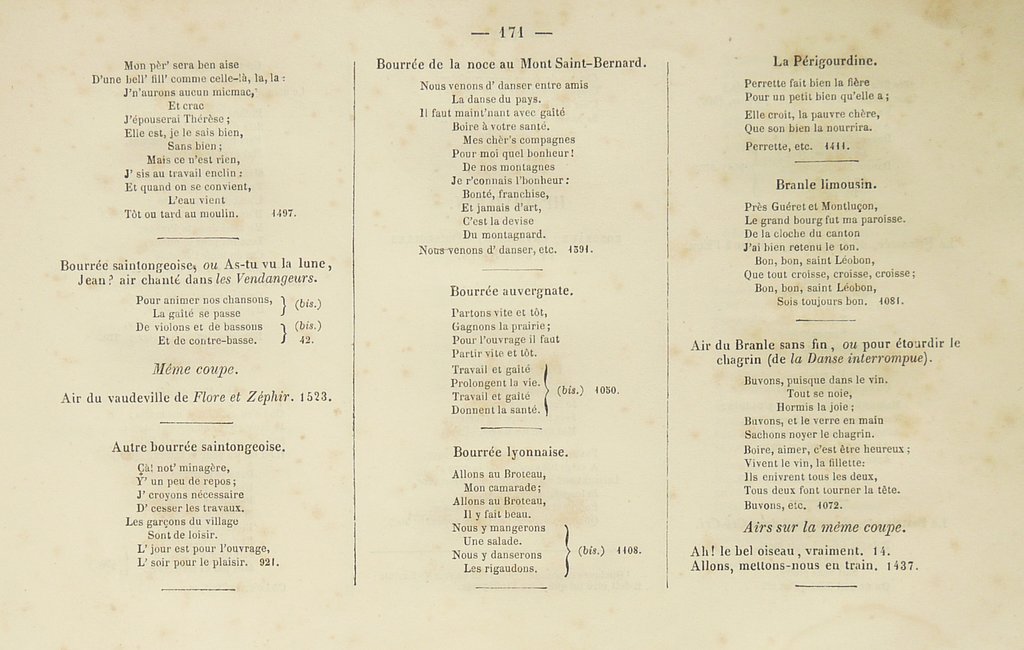 — 171 —
Mon pèr' sera ben aise
D'une bell' fill' comme celle-là, la, la :
J'n'aurons aucun micmac,
Et crac
J'épouserai Thérèse ;
Elle est, je le sais bien,
Sans bien ;
Mais ce n'est rien,
J' sis au travail enclin :
Et quand on se convient,
L'eau vient
Tôt ou tard au moulin. 1497.
Bourrée saintongeoise, ou As-tu vu la lune,
Jean? air chanté dans les Vendangeurs.
Pour animer nos chansons, } (bis.)
La gaîté se passe
De violons et de bassons } (bis.)
Et de contre-basse. 42.
Même coupe.
Air du vaudeville de Flore et Zéphir. 1523.
Autre bourrée saintongeoise.
Çà! not' minagère,
Y' un peu de repos ;
J' croyons nécessaire
D' cesser les travaux.
Les garçons du village
Sont de loisir.
L' jour est pour l'ouvrage,
L' soir pour le plaisir. 921.
Bourrée de la noce au Mont Saint-Bernard.
Nous venons d' danser entre amis
La danse du pays.
Il faut maint'nant avec gaîté
Boire à votre santé.
Mes chèr's compagnes
Pour moi quel bonheur !
De nos montagnes
Je r'connais l'bonheur :
Bonté, franchise,
Et jamais d'art,
C'est la devise
Du montagnard.
Nous venons d' danser, etc. 1391.
Bourrée auvergnate.
Partons vite et tôt,
Gagnons la prairie ;
Pour l'ouvrage il faut
Partir vite et tôt.
Travail et gaîté
Prolongent la vie. } (bis.) 1050.
Travail et gaîté
Donnent la santé.
Bourrée lyonnaise.
Allons au Broteau,
Mon camarade ;
Allons au Broteau,
Il y fait beau.
Nous y mangerons
Une salade. } (bis.) 1108.
Nous y danserons
Les rigaudons.
La Périgourdine.
Perrette fait bien la fière
Pour un petit bien qu'elle a ;
Elle croit, la pauvre chère,
Que son bien la nourrira.
Perrette, etc. 1411.
Branle limousin.
Près Guéret et Montluçon,
Le grand bourg fut ma paroisse.
De la cloche du canton
J'ai bien retenu le ton.
Bon, bon, saint Léobon,
Que tout croisse, croisse, croisse ;
Bon, bon, saint Léobon,
Sois toujours bon. 1081.
Air du Branle sans fin, ou pour étourdir le
chagrin (de la Danse interrompue).
Buvons, puisque dans le vin.
Tout se noie,
Hormis la joie ;
Buvons, et le verre en main
Sachons noyer le chagrin.
Boire, aimer, c'est être heureux ;
Vivent le vin, la fillette:
Ils enivrent tous les deux,
Tous deux font tourner la tête.
Buvons, etc. 1072.
Airs sur la même coupe.
Ah! le bel oiseau, vraiment. 14.
Allons, mettons-nous en train. 1437.